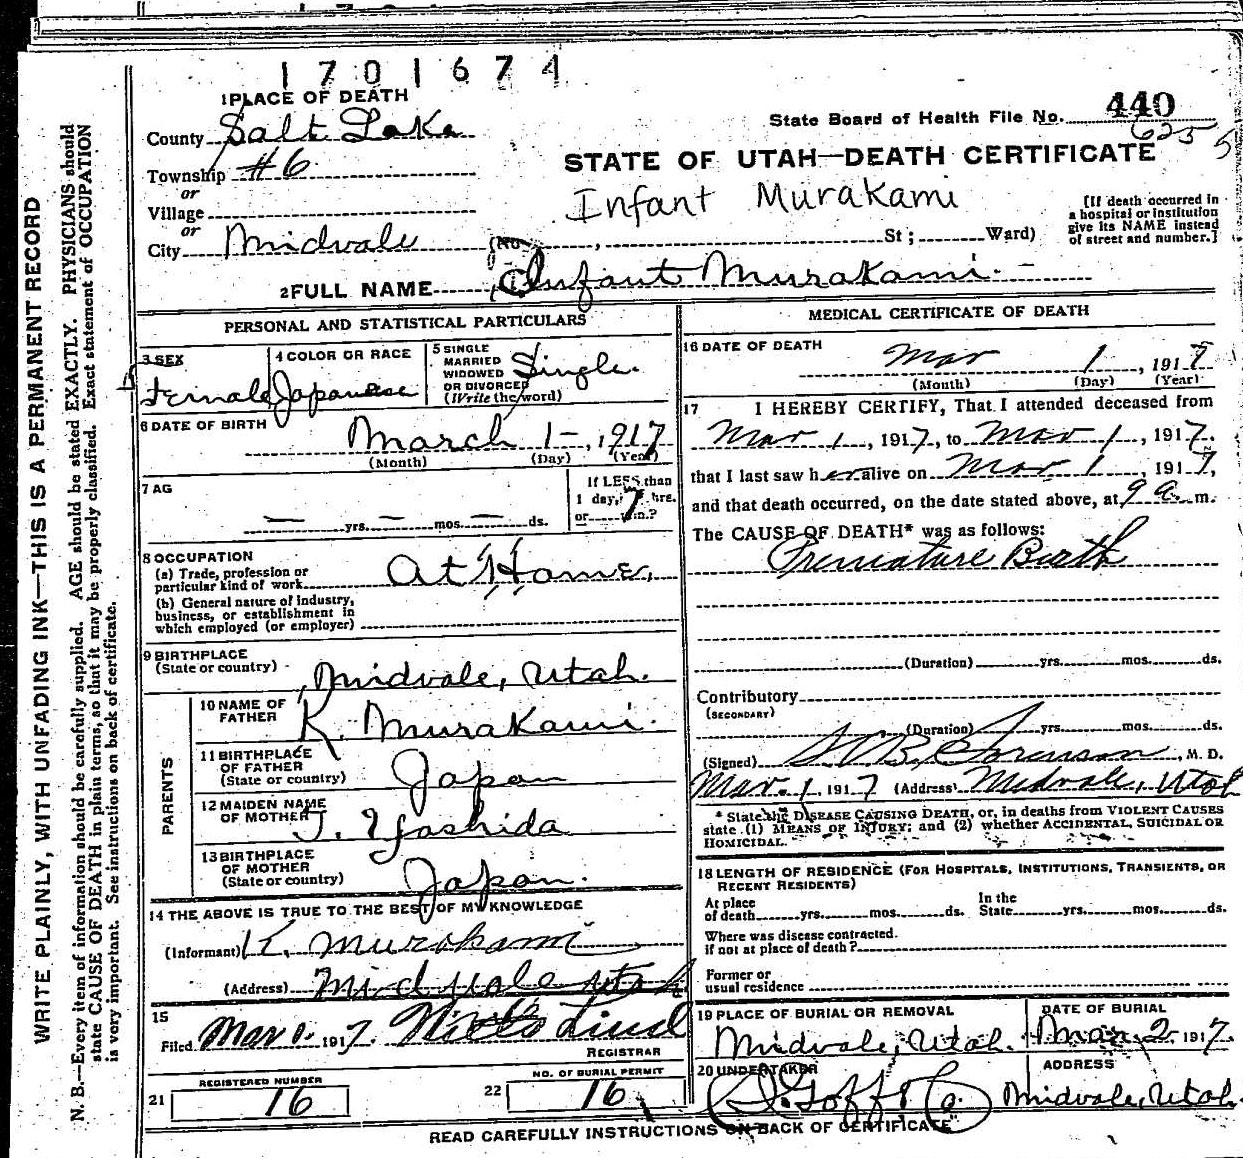 1701674
1 PLACE OF DEATH
County Salt Lake
Township #6
or
Village
or
City Midvale
State Board of Health File No. 440
6255
STATE OF UTAH—DEATH CERTIFICATE
Infant Murakami
(No. , St; Ward)
[If death occurred in
a hospital or institution
give its NAME instead
of street and number.]
2 FULL NAME Infant Murakami.
PERSONAL AND STATISTICAL PARTICULARS
3 SEX
Female
4 COLOR OR RACE
Japanese
5 SINGLE
MARRIED
WIDOWED
OR DIVORCED
(Write the word)
Single.
6 DATE OF BIRTH
March 1 - , 1917
(Month) (Day) (Year)
7 AG
— yrs. — mos. — ds.
If LESS than
1 day, 7 hrs.
or min.?
8 OCCUPATION
(a) Trade, profession or
particular kind of work
At Home.
(b) General nature of industry,
business, or establishment in
which employed (or employer)
9 BIRTHPLACE
(State or country)
Midvale, Utah.
PARENTS
10 NAME OF
FATHER
K. Murakami.
11 BIRTHPLACE
OF FATHER
(State or country)
Japan
12 MAIDEN NAME
OF MOTHER
T. Yashida
13 BIRTHPLACE
OF MOTHER
(State or country)
Japan.
14 THE ABOVE IS TRUE TO THE BEST OF MY KNOWLEDGE
(Informant) K. Murakami
(Address) Midvale Utah
15
Filed Mar 1. 1917.
REGISTRAR
REGISTERED NUMBER
21 16
NO. OF BURIAL PERMIT
22 16
MEDICAL CERTIFICATE OF DEATH
16 DATE OF DEATH
Mar 1 , 1917
(Month) (Day) (Year)
17 I HEREBY CERTIFY, That I attended deceased from
Mar 1 , 1917, to Mar 1 , 1917.
that I last saw her alive on Mar 1 , 1917,
and that death occurred, on the date stated above, at 9 a. m.
The CAUSE OF DEATH* was as follows:
Premature Birth
(Duration) yrs. mos. ds.
Contributory
(SECONDARY)
(Duration) yrs. mos. ds.
(Signed) Sorenson, M. D.
Mar. 1, 1917 (Address) Midvale, Utah
* State the DISEASE CAUSING DEATH, or, in deaths from VIOLENT CAUSES
state (1) MEANS OF INJURY; and (2) whether ACCIDENTAL, SUICIDAL OR
HOMICIDAL.
18 LENGTH OF RESIDENCE (FOR HOSPITALS, INSTITUTIONS, TRANSIENTS, OR
RECENT RESIDENTS)
At place
of death yrs. mos. ds.
In the
State yrs. mos. ds.
Where was disease contracted.
if not at place of death?
Former or
usual residence
19 PLACE OF BURIAL OR REMOVAL
Midvale, Utah.
DATE OF BURIAL
Mar. 2. 1917.
20 UNDERTAKER
Goff Co.
ADDRESS
Midvale, Utah.
READ CAREFULLY INSTRUCTIONS ON BACK OF CERTIFICATE
WRITE PLAINLY, WITH UNFADING INK—THIS IS A PERMANENT RECORD
N. B.—Every item of information should be carefully supplied. AGE should be stated EXACTLY. PHYSICIANS should
state CAUSE OF DEATH in plain terms, so that it may be properly classified. Exact statement of OCCUPATION
is very important. See instructions on back of certificate.